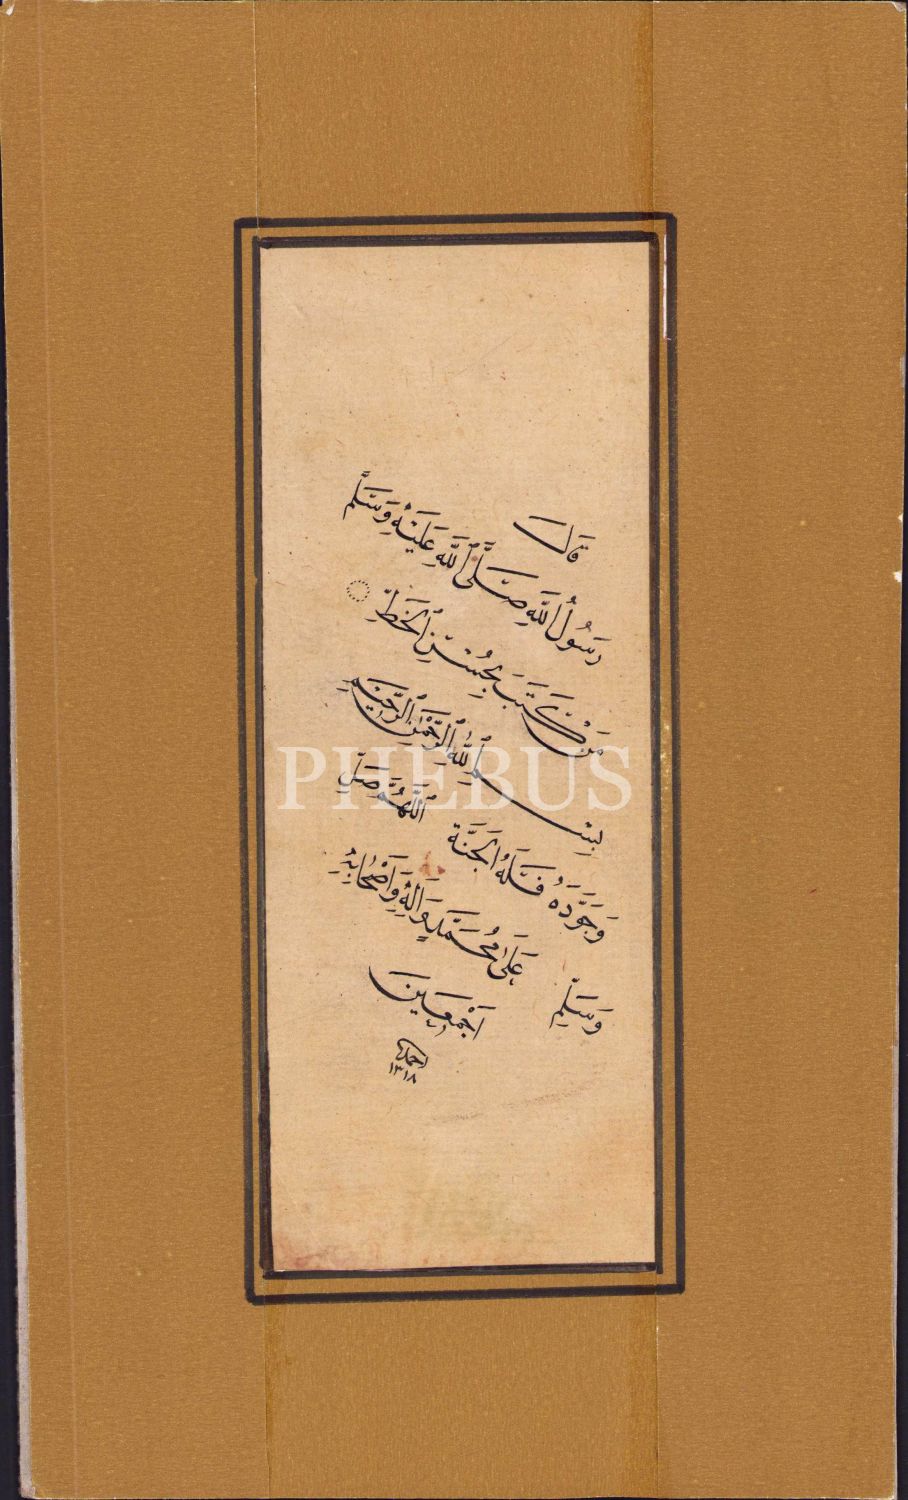 قَالَ
رَسُولُ اللّٰهِ صَلَّى اللّٰهُ عَلَيْهِ وَسَلَّمَ
مَنْ كَتَبَ بِحُسْنِ الْخَطِّ
بِسْمِ اللّٰهِ الرَّحْمٰنِ الرَّحِيمِ
وَجَوَّدَهُ فَلَهُ الْجَنَّة اَللّٰهُمَّ صَلِّ
عَلٰى مُحَمَّدٍ وَاٰلِهِ وَاَصْحَابِهِ
وَسَلِّمْ اَجْمَعِينَ
١٣١٨
PHEBUS